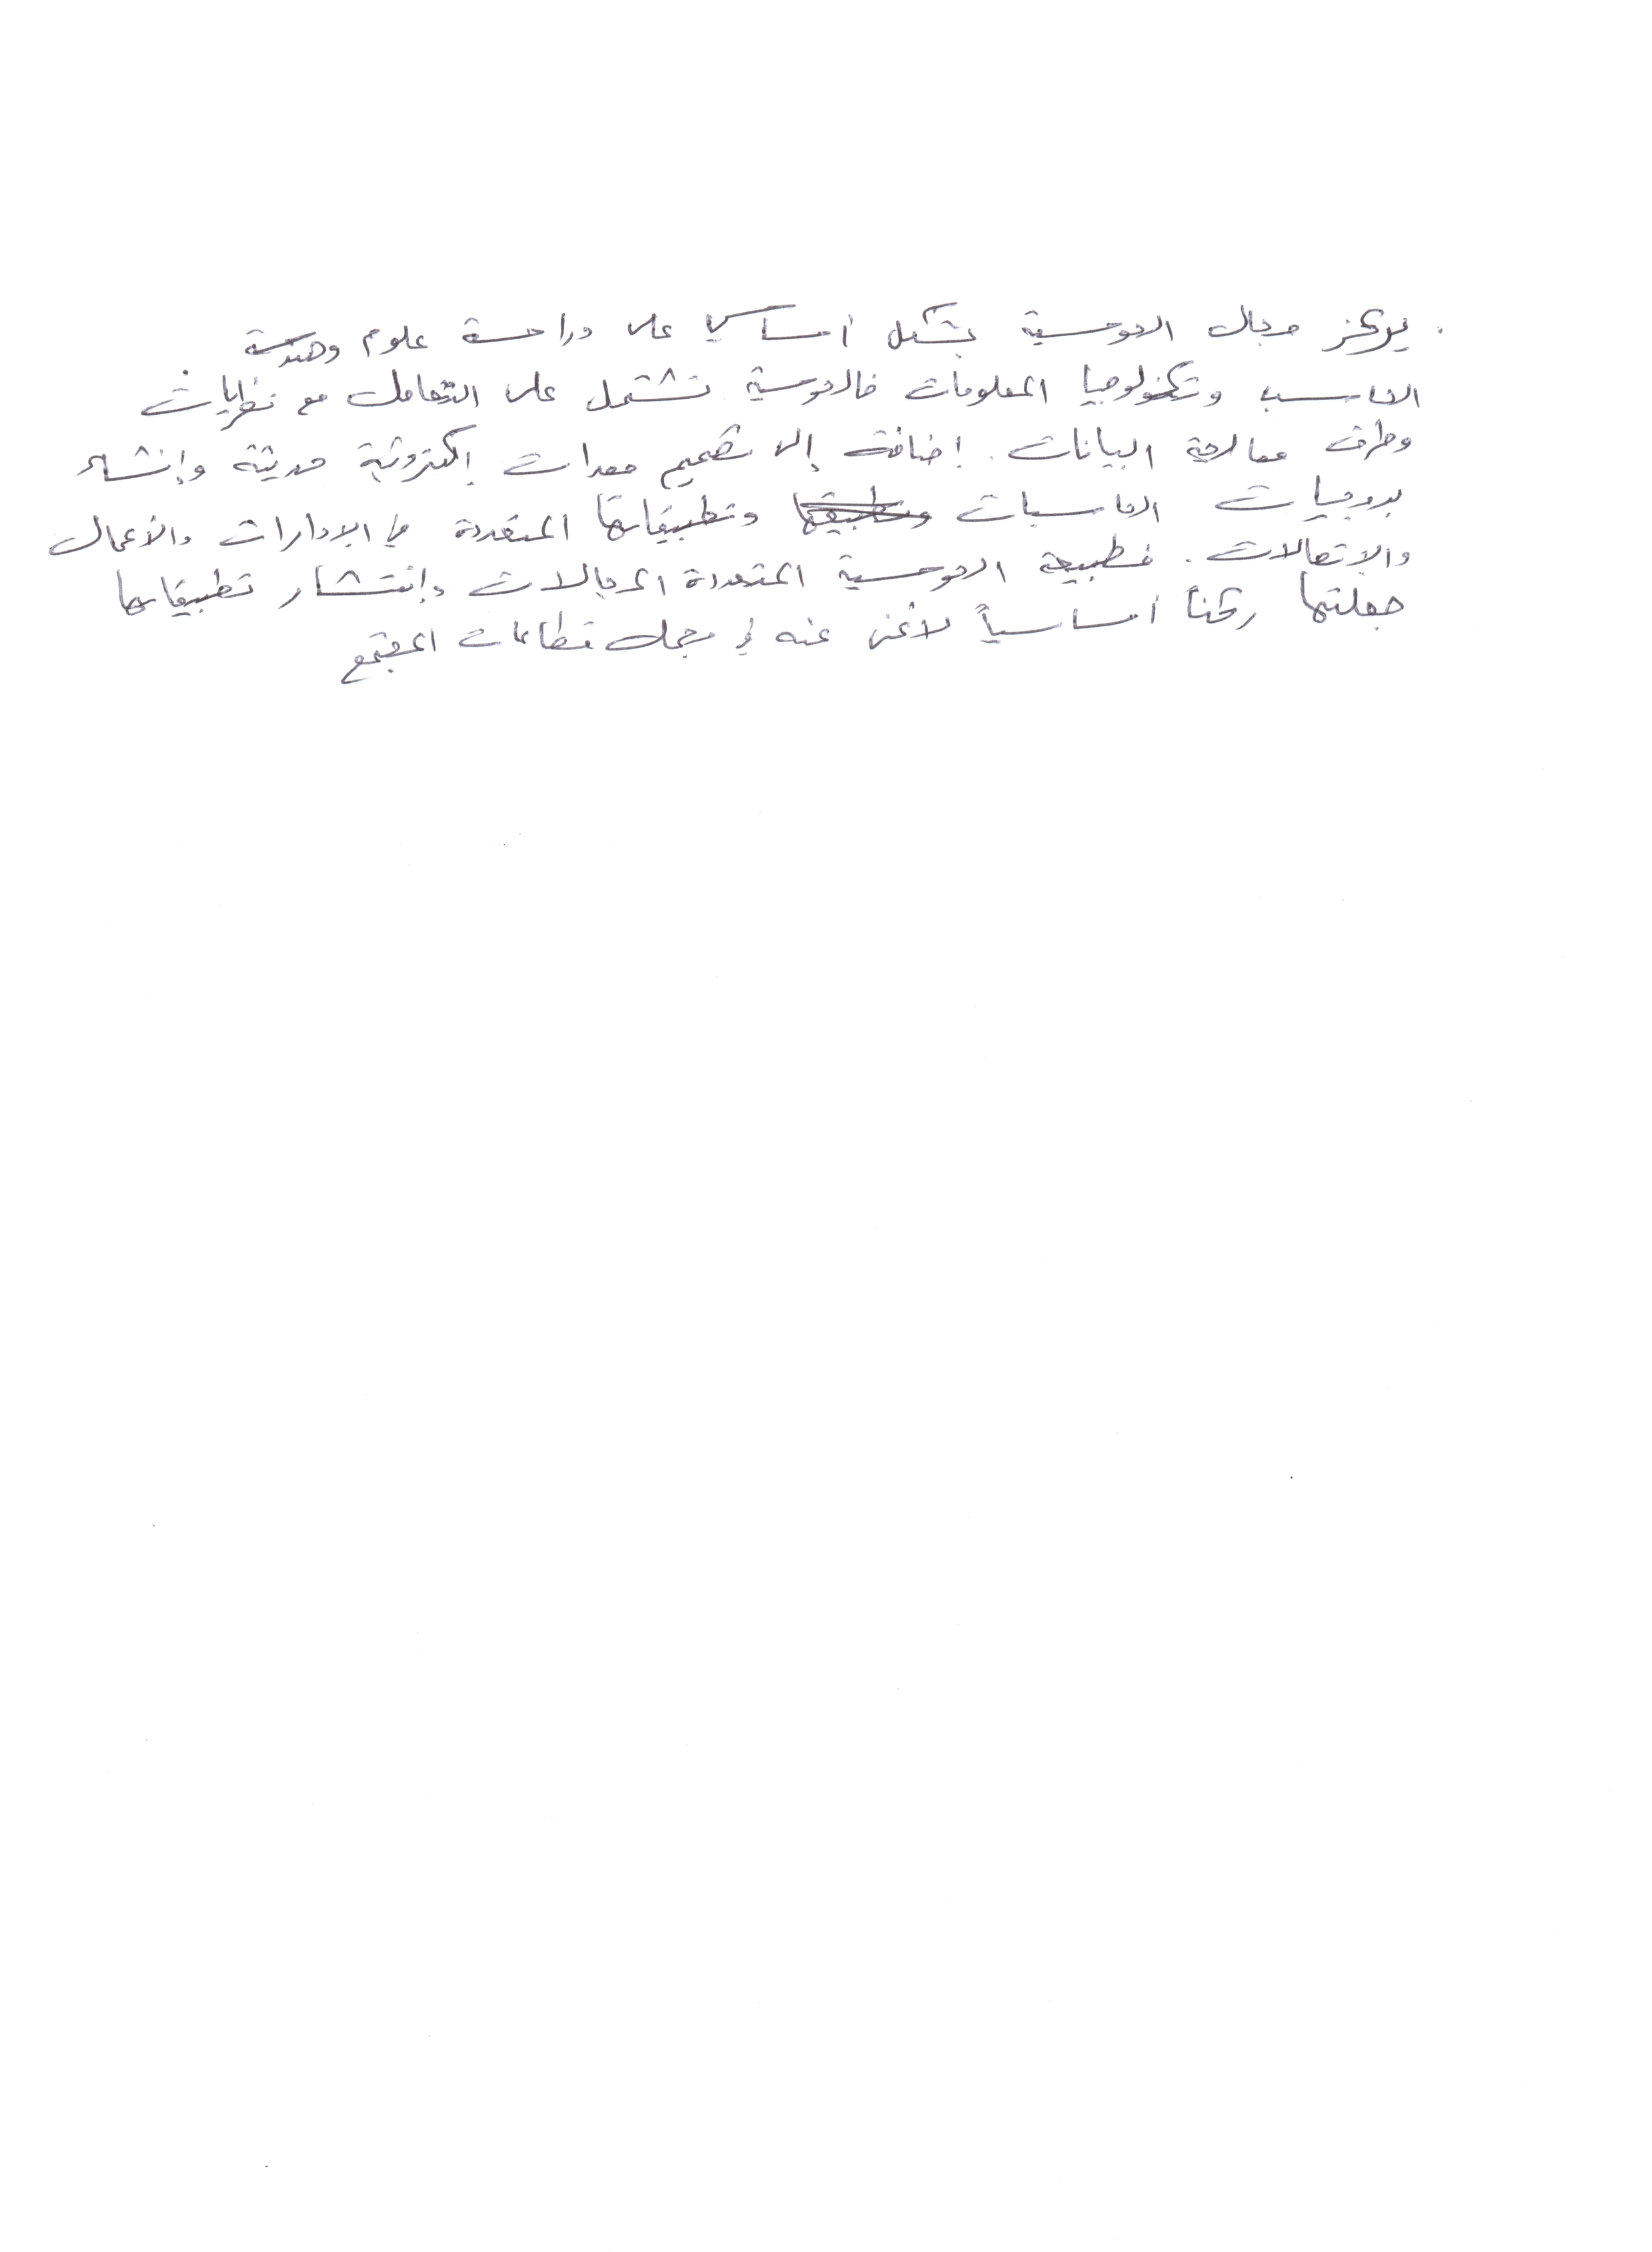 . يركز مجال الحوسبة بشكل أساسي على دراسة علوم وهندسة
الحاسب وتكنولوجيا المعلومات فالحوسبة تشتمل على التعامل مع نظرايات
وطرق معالجة البيانات. إضافة إلى تصميم معدات إلكترونية حديثة وإنشاء
برمجيات الحاسبات وتطبيقاتها المتعددة في الإدارات والأعمال
والاتصالات. فطبيعة الحوسبة المتعددة المجالات وإنتشار تطبيقاتها
جعلتها ركناً أساسياً لاغنى عنه في مجمل قطاعات المجتمع